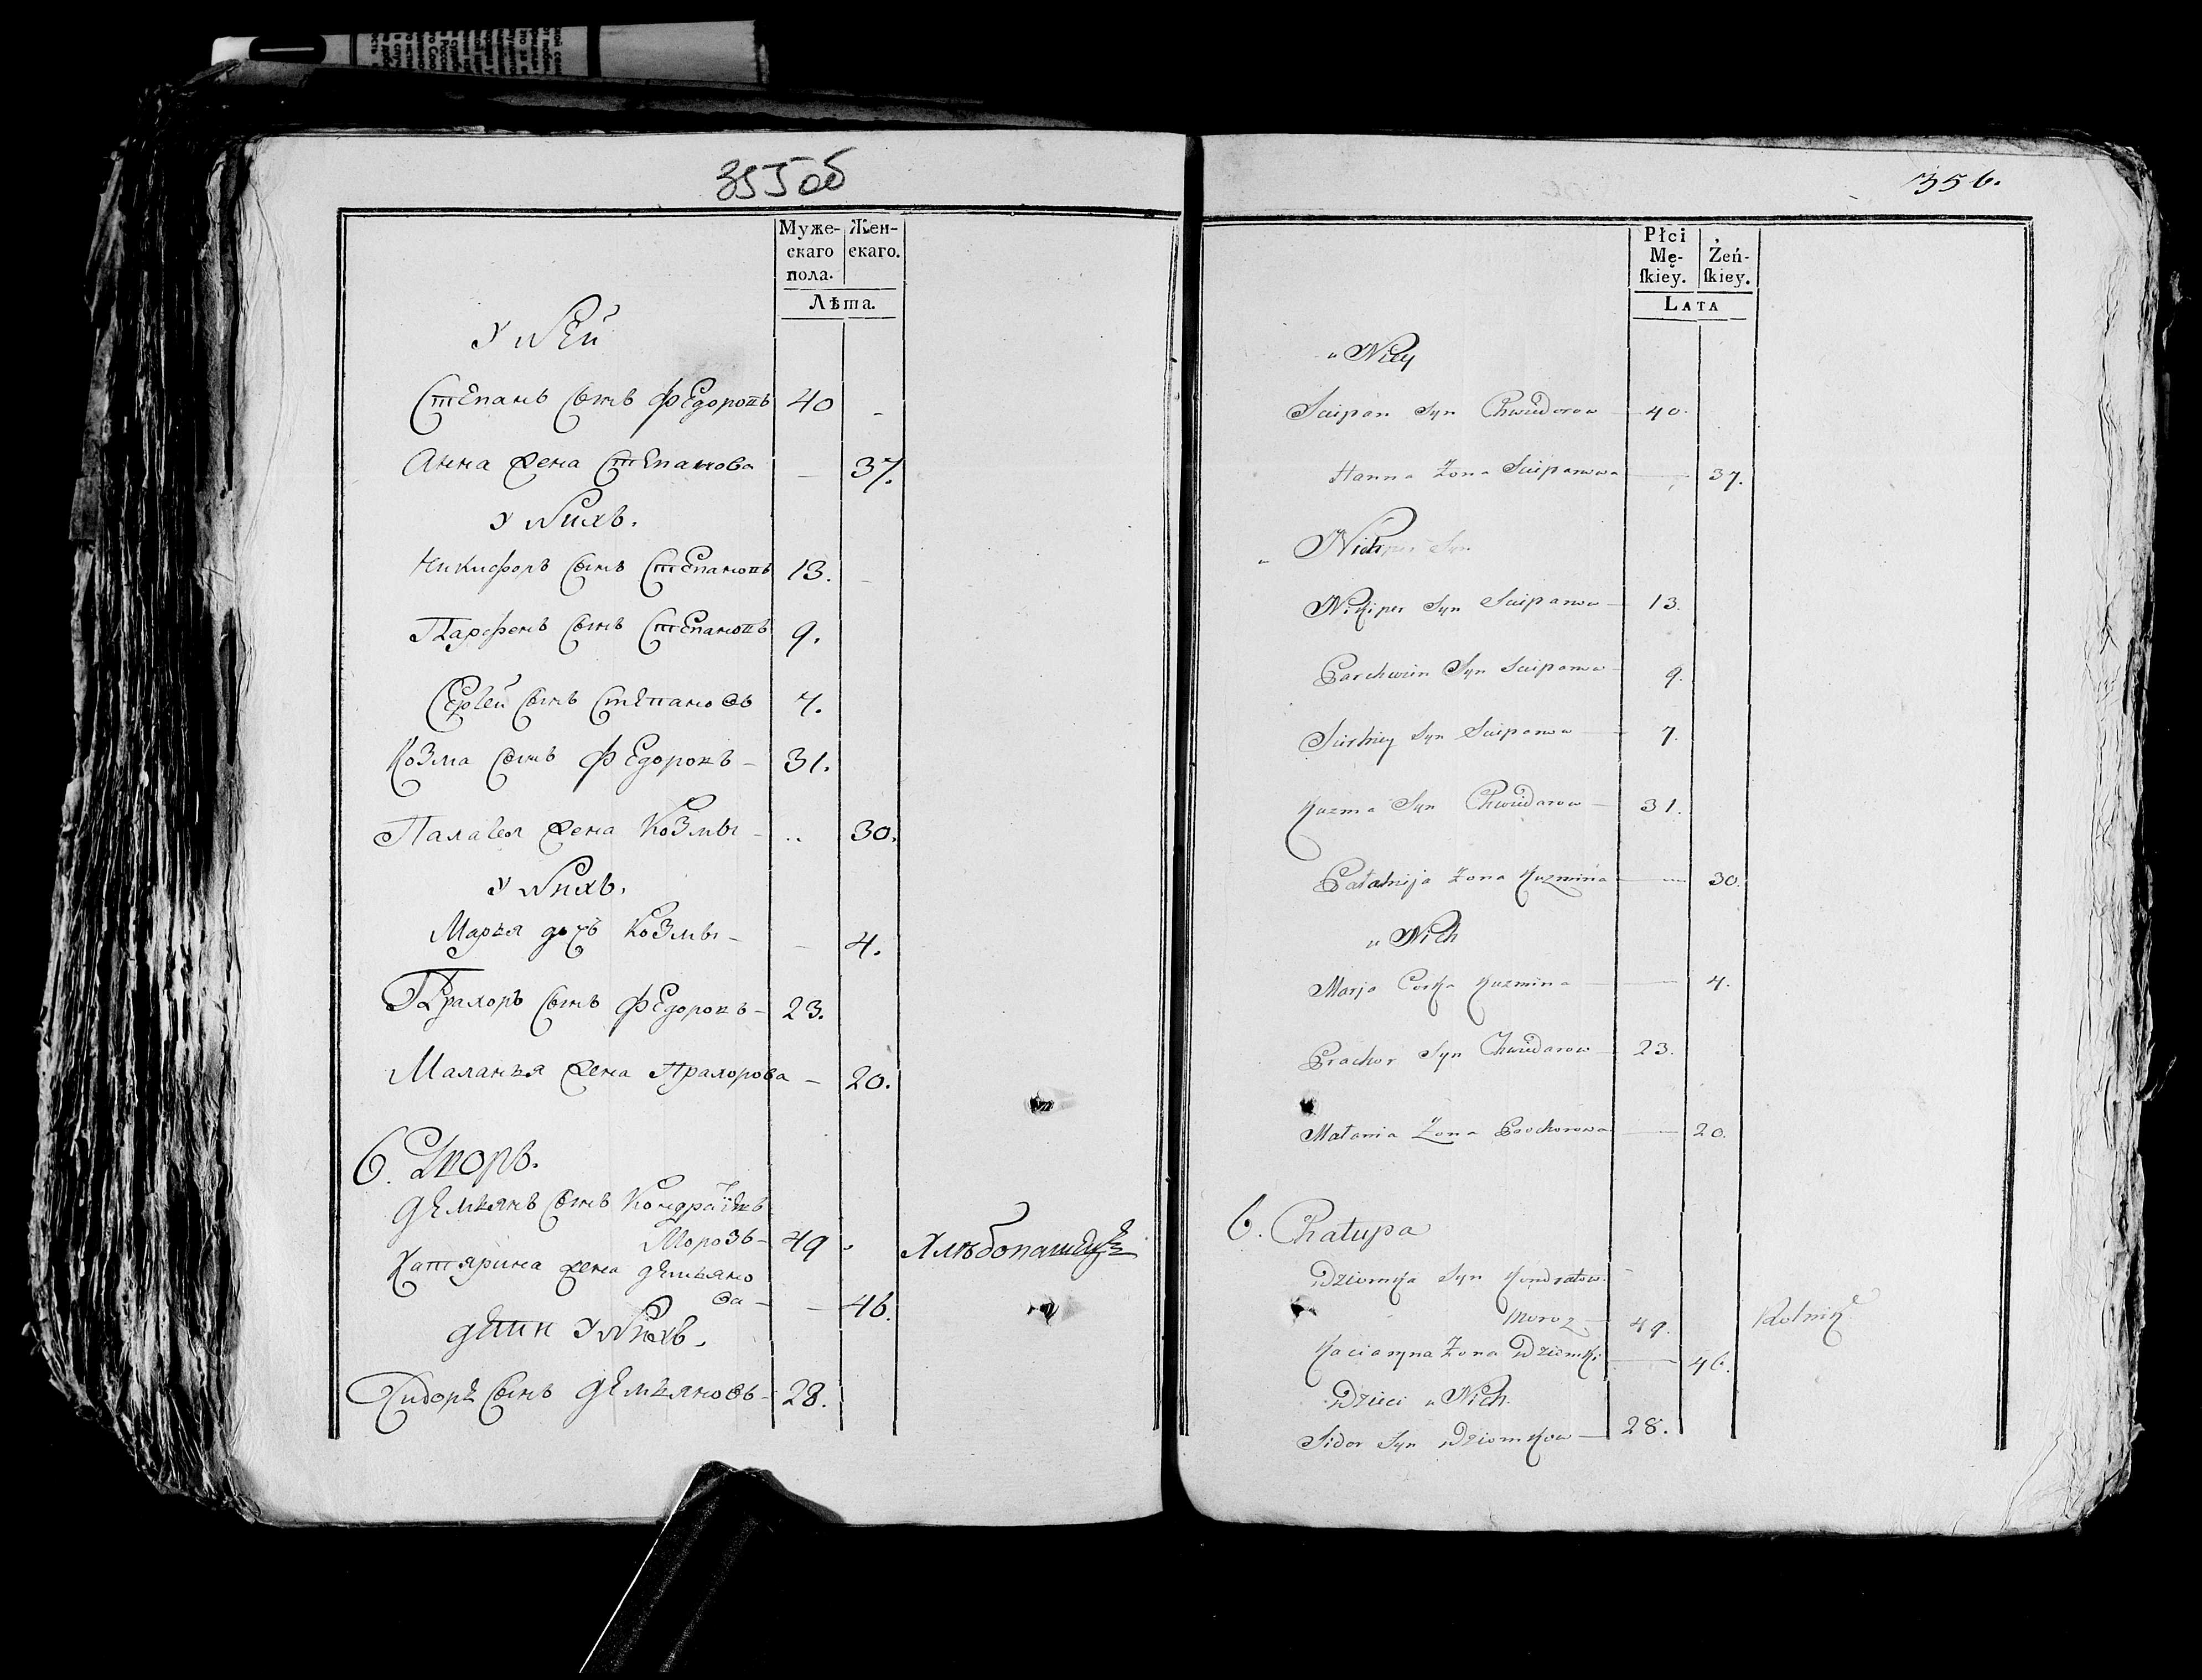 355 об
Муже-
скаго
пола.
Жен-
скаго.
Лѣта.
У Ней
Степанъ Сынъ Федоровъ 40 -
Анна Жена Степанова - 37.
У Нихъ.
Никифоръ Сынъ Степановъ 13. -
Парфенъ Сынъ Степановъ 9.
Сергей Сынъ Степановъ 7.
Козма Сынъ Федоровъ - 31.
Палагея Жена Козмы - .. 30.
У Нихъ.
Марья дочь Козмы - - 4.
Прахоръ Сынъ Федоровъ - 23.
Маланья Жена Прахорова - 20.
6. Дворъ.
Демьянъ Сынъ Кондратовъ
Морозъ - 49 - Хлѣбопашецъ
Катярина Жена Демьяно
ва - - 46.
Дети У Нихъ.
Сидоръ Сынъ Демьяновъ - 28.
356.
Płci
Mę-
ſkiey.
Żeń-
ſkiey.
LATA
u Niey
Sciepan Syn Chwiedorow 40.
Hanna Żona Sciepanowa — 37.
u Nich
Nikiper Syn Sciepanow — 13.
Parchwien Syn Sciepanow 9.
Sierhiey Syn Sciepanow — 7.
Kuzma Syn Chwiedarow — 31.
Pałahija Żona Kuzmina — 30.
u Nich
Marja Corka Kuzmina — 4.
Prachor Syn Chwiedarow — 23.
Małania Żona Prochorowa — 20.
6. Chałupa
Dziomka Syn Kondratow
Moroz — 49. Rolnik
Kaciaryna Żona Dziomki — 46.
Dzieci u Nich
Sidor Syn Dziomkow — 28.